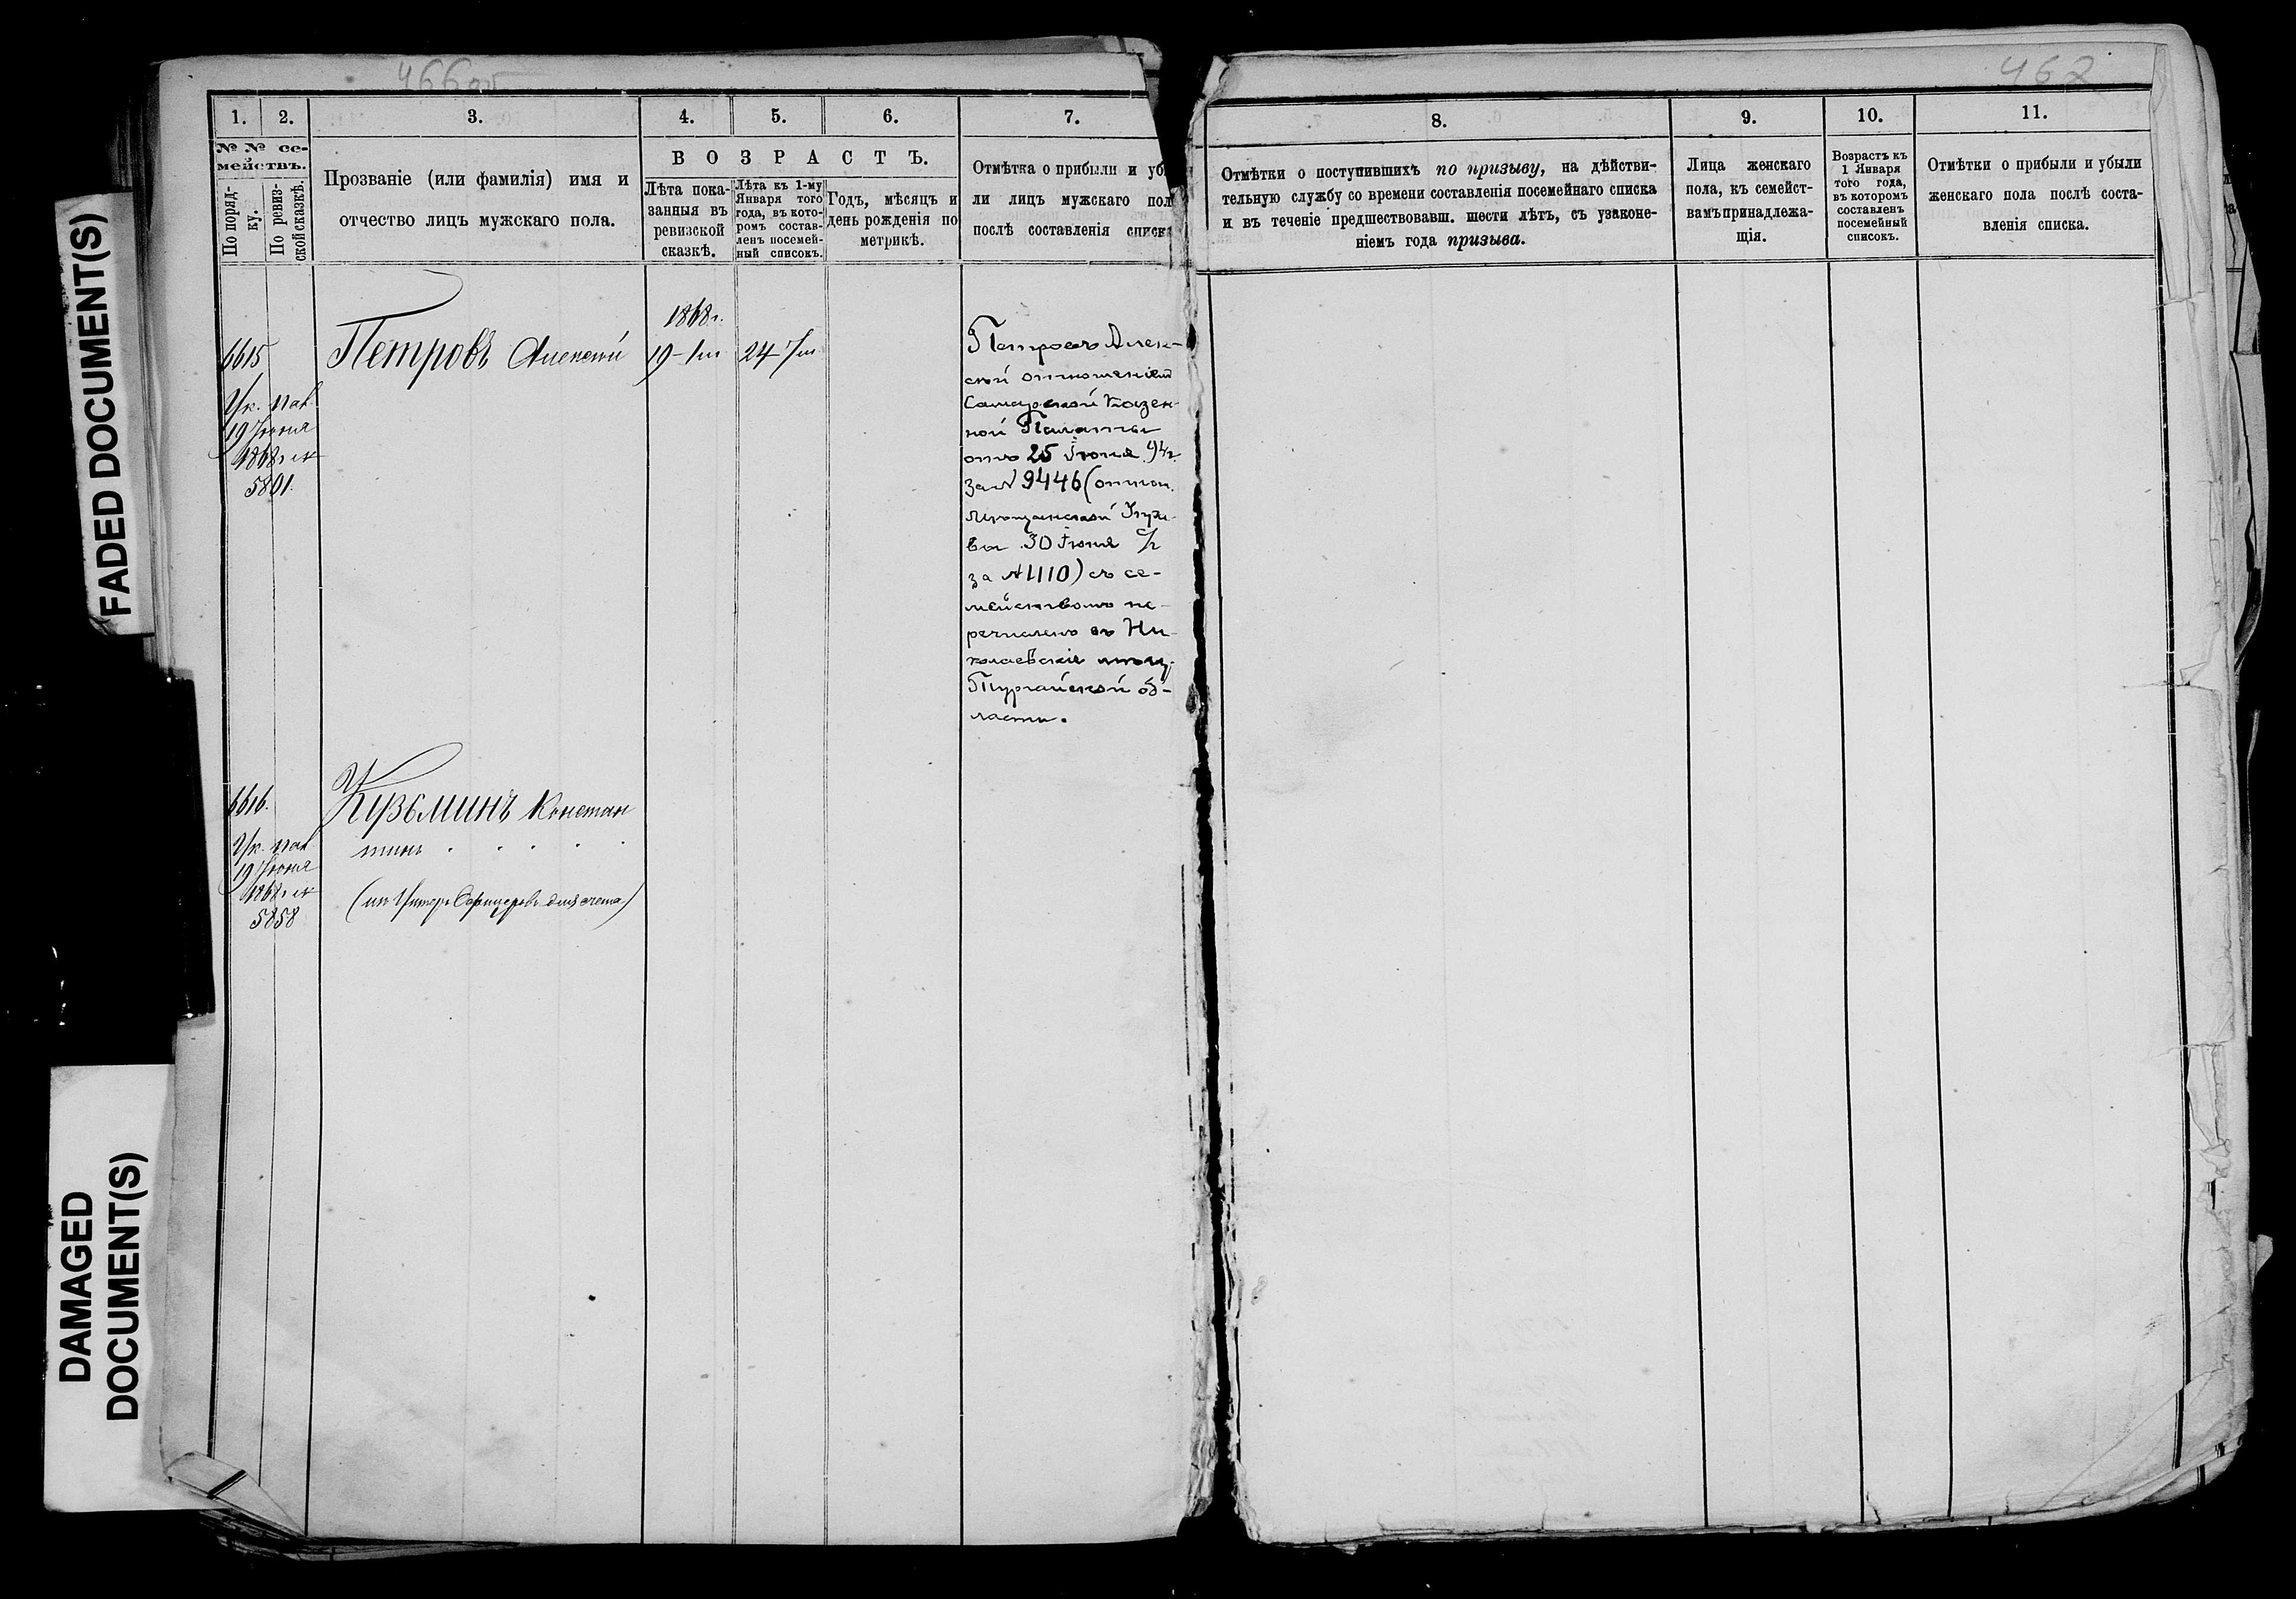 466об
467
1.
2.
3.
4.
5.
6.
7.
8.
9.
10.
11.
№ № се-
мействъ.
По поряд-
ку.
По ревиз-
ской сказкѣ.
Прозваніе (или фамилія) имя и
отчество лицъ мужскаго пола.
ВОЗРАСТЪ.
Лѣта пока-
занныя въ
ревизской
сказкѣ.
Лѣта къ 1-му
Января того
года, въ кото-
ромъ состав-
ленъ посемей-
ный списокъ.
Годъ, мѣсяцъ и
день рожденія по
метрикѣ.
Отмѣтка о прибыли и уб
ли лицъ мужскаго пол
послѣ составленія списк
Отмѣтки о поступившихъ по призыву, на дѣйстви-
тельную службу со времени составленія посемейнаго списка
и въ теченіе предшествовавш. шести лѣтъ, съ узаконе-
ніемъ года призыва.
Лица женскаго
пола, къ семейст-
вамъ принадлежа-
щія.
Возрастъ къ
1 Января
того года,
въ которомъ
составленъ
посемейный
списокъ.
Отмѣтки о прибыли и убыли
женскаго пола послѣ соста-
вленія списка.
6615
Ук. пал.
19 Іюня
1868 г. №
5801.
Петровъ Алексѣй
1868 г.
19-1/м
24-7/м
Петровъ Алек-
сѣй отношеніем
Самарской Казен-
ной Палаты
отъ 25 Іюня 94 г.
за № 9446 (отнош.
Мѣщанской Упра-
вы 30 Іюня с/г
за № 1110) съ се-
мействомъ пе-
речисленъ въ Ни-
колаевскіе мѣщ.
Тургайской об-
ласти.
6616.
Ук. пал.
19 Іюня
1868 г. №
5858
Кузьминъ Констан
тинъ
(изъ Унтеръ Офицеровъ для счета)
FADED DOCUMENT(S)
DAMAGED
DOCUMENT(S)